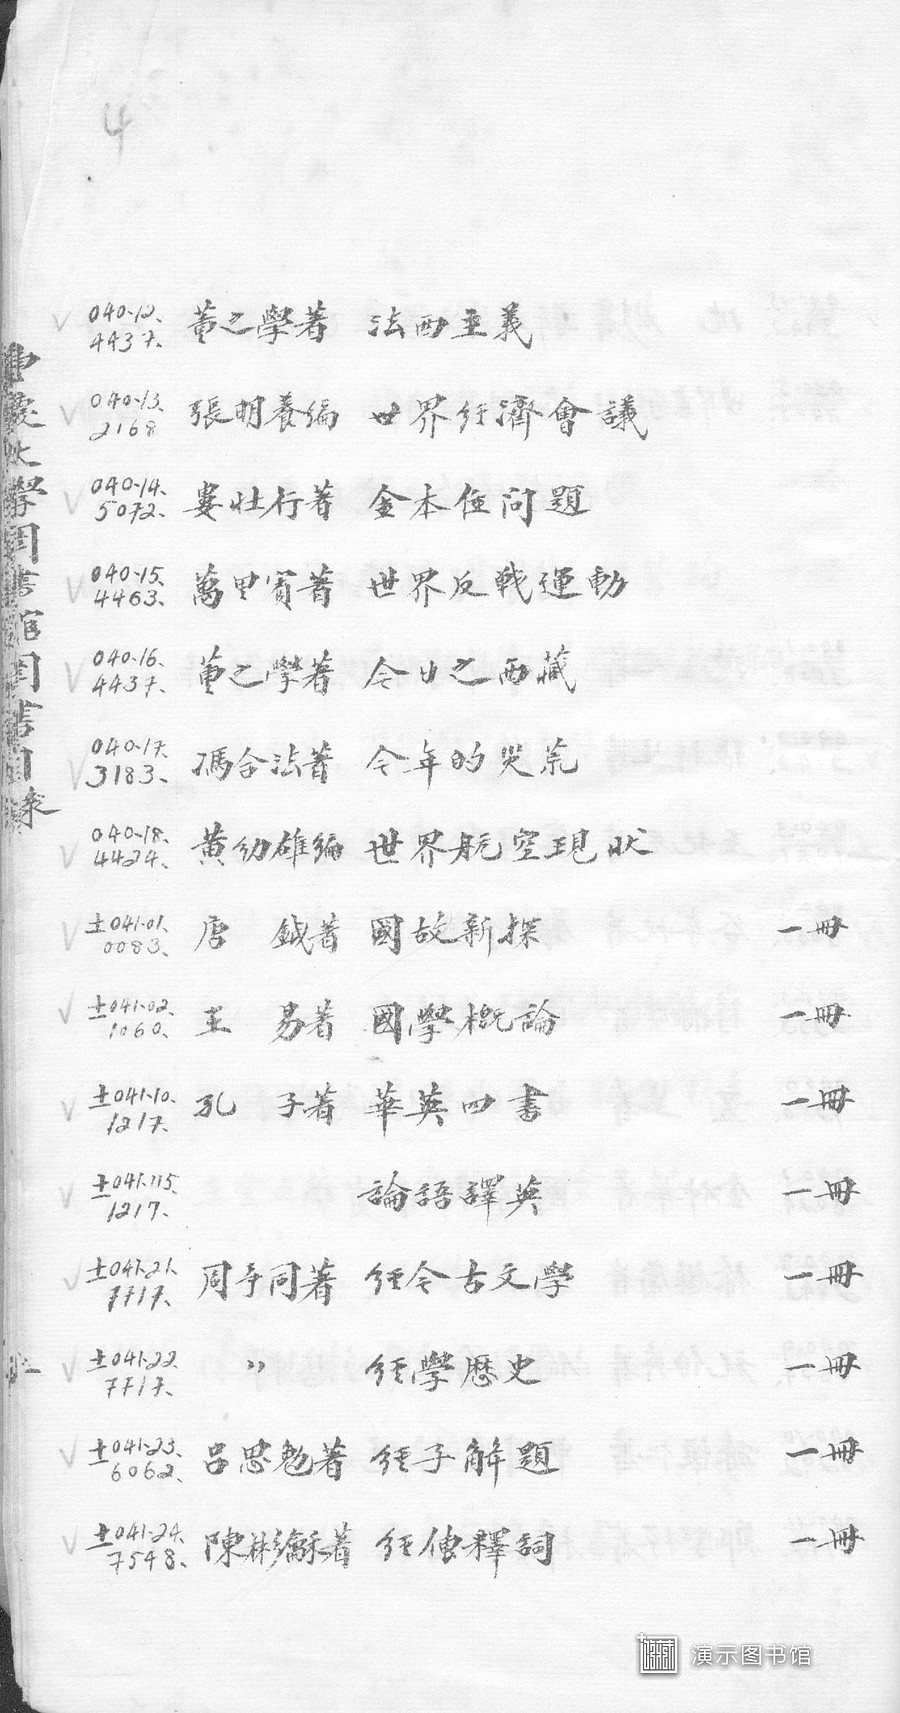 4
040-12、 董之學著 法西主義
4437、
040-13、 張明養編 世界經濟會議
2168
040-14、 婁壮行著 金本位问題
5072、
040-15、 萬里賓著 世界反戰運動
4463、
040-16、 董之學著 今日之西藏
4437、
040-17、 馮合法著 今年的災荒
3183、
040-18、 黄幼雄編 世界航空現狀
4424、
士041-01、 唐 鉞著 國故新探 一冊
0083、
士041-02、 王 易著 國學概論 一冊
1060、
士041-10、 孔 子著 華英四書 一冊
1217、
士041-115、 論語譯英 一冊
1217、
士041-21、 周予同著 經今古文學 一冊
7717、
士041-22、 〃 經學歷史 一冊
7717、
士041-23、 吕思勉著 經子解題 一冊
6062、
士041-24、 陳彬龢著 經傳釋詞 一冊
7548、
學圖書館圖書目录
演示图书馆